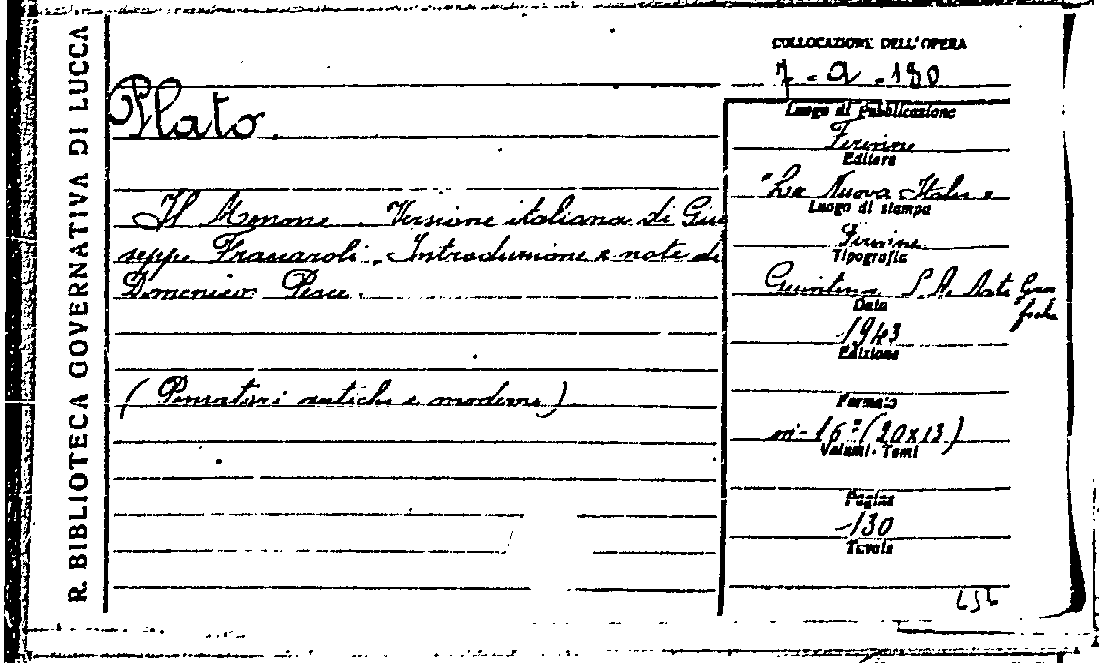 R. BIBLIOTECA GOVERNATIVA DI LUCCA
COLLOCAZIONE DELL'OPERA
7 - a - 180
Plato.
Il Menone. Versione italiana di Giu
seppe Fraccaroli. Introduzione e note di
Domenico Pesce.
(Pensatori antichi e moderni)
Luogo di pubblicazione
Firenze
Editore
"La Nuova Italia"
Luogo di stampa
Firenze
Tipografia
Giuntina S.A. Arti Gra
fiche
Data
1943
Edizione
Formato
in-16° (20x13)
Volumi - Tomi
Pagine
130
Tavole